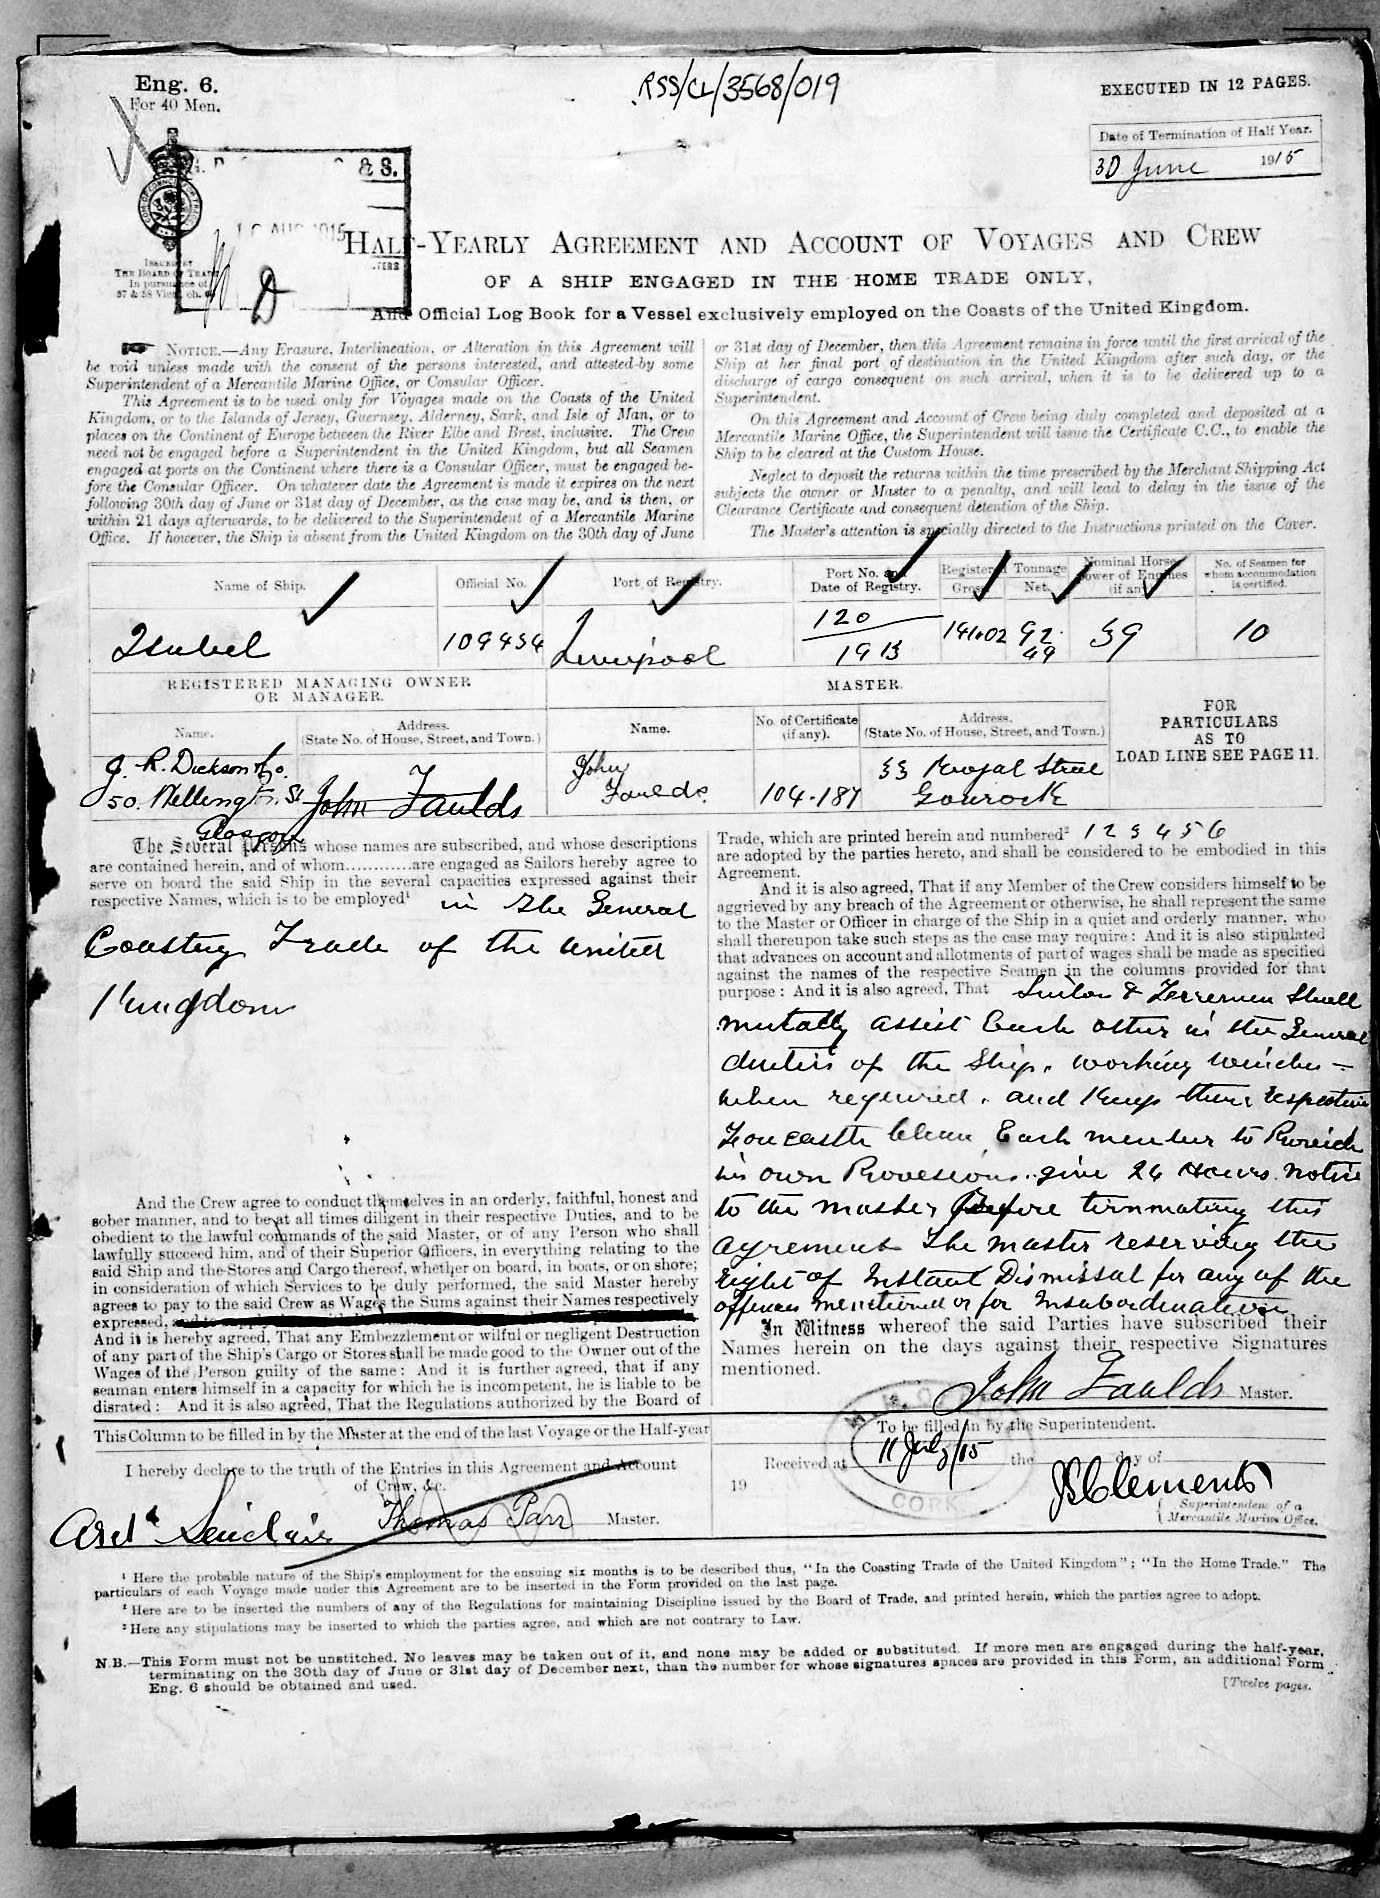 Eng. 6.
For 40 Men.
RSS/CL/3568/019
EXECUTED IN 12 PAGES.
Date of Termination of Half Year.
30 June 1915
& S.
ISSUED BY
THE BOARD OF TRADE
In pursuance of
57 & 58 Vict. ch.
HALF-YEARLY AGREEMENT AND ACCOUNT OF VOYAGES AND CREW
OF A SHIP ENGAGED IN THE HOME TRADE ONLY,
And Official Log Book for a Vessel exclusively employed on the Coasts of the United Kingdom.
NOTICE.—Any Erasure, Interlineation, or Alteration in this Agreement will
be void unless made with the consent of the persons interested, and attested by some
Superintendent of a Mercantile Marine Office, or Consular Officer.
This Agreement is to be used only for Voyages made on the Coasts of the United
Kingdom, or to the Islands of Jersey, Guernsey, Alderney, Sark, and Isle of Man, or to
places on the Continent of Europe between the River Elbe and Brest, inclusive. The Crew
need not be engaged before a Superintendent in the United Kingdom, but all Seamen
engaged at ports on the Continent where there is a Consular Officer, must be engaged be-
fore the Consular Officer. On whatever date the Agreement is made it expires on the next
following 30th day of June or 31st day of December, as the case may be, and is then, or
within 21 days afterwards, to be delivered to the Superintendent of a Mercantile Marine
Office. If however, the Ship is absent from the United Kingdom on the 30th day of June
or 31st day of December, then this Agreement remains in force until the first arrival of the
Ship at her final port of destination in the United Kingdom after such day, or the
discharge of cargo consequent on such arrival, when it is to be delivered up to a
Superintendent.
On this Agreement and Account of Crew being duly completed and deposited at a
Mercantile Marine Office, the Superintendent will issue the Certificate C.C., to enable the
Ship to be cleared at the Custom House.
Neglect to deposit the returns within the time prescribed by the Merchant Shipping Act
subjects the owner or Master to a penalty, and will lead to delay in the issue of the
Clearance Certificate and consequent detention of the Ship.
The Master's attention is specially directed to the Instructions printed on the Cover.
Name of Ship. Official No. Port of Registry. Port No. and Date of Registry. Register Tonnage Gross. Net. Nominal Horse Power of Engines (if any) No. of Seamen for whom accommodation is certified.
Isabel 109454 Liverpool 120 1913 141.02 92.49 59 10
REGISTERED MANAGING OWNER OR MANAGER. MASTER.
Name. Address. (State No. of House, Street, and Town.) Name. No. of Certificate (if any). Address. (State No. of House, Street, and Town.)
FOR
PARTICULARS
AS TO
LOAD LINE SEE PAGE 11.
J. R. Dickson & Co.
50. Wellington St
Glasgow
John Faulds
John Faulds
104.187
Royal Street
Gourock
The Several Persons whose names are subscribed, and whose descriptions
are contained herein, and of whom............are engaged as Sailors hereby agree to
serve on board the said Ship in the several capacities expressed against their
respective Names, which is to be employed¹ in the General
Coasting Trade of the United
Kingdom
And the Crew agree to conduct themselves in an orderly, faithful, honest and
sober manner, and to be at all times diligent in their respective Duties, and to be
obedient to the lawful commands of the said Master, or of any Person who shall
lawfully succeed him, and of their Superior Officers, in everything relating to the
said Ship and the Stores and Cargo thereof, whether on board, in boats, or on shore;
in consideration of which Services to be duly performed, the said Master hereby
agrees to pay to the said Crew as Wages the Sums against their Names respectively
expressed,
And it is hereby agreed, That any Embezzlement or wilful or negligent Destruction
of any part of the Ship's Cargo or Stores shall be made good to the Owner out of the
Wages of the Person guilty of the same: And it is further agreed, that if any
seaman enters himself in a capacity for which he is incompetent, he is liable to be
disrated: And it is also agreed, That the Regulations authorized by the Board of
Trade, which are printed herein and numbered² 1 2 3 4 5 6
are adopted by the parties hereto, and shall be considered to be embodied in this
Agreement.
And it is also agreed, That if any Member of the Crew considers himself to be
aggrieved by any breach of the Agreement or otherwise, he shall represent the same
to the Master or Officer in charge of the Ship in a quiet and orderly manner, who
shall thereupon take such steps as the case may require: And it is also stipulated
that advances on account and allotments of part of wages shall be made as specified
against the names of the respective Seamen in the columns provided for that
purpose: And it is also agreed, That Sailors & Firemen Shall
mutally assist Each other in the General
duties of the Ship. working winches
when required. and Keep their respective
Foucastle Clean Each member to Provide
his own Provesions. give 24 Hours notice
to the master Before tirmnating this
agrement The master reserving the
right of Instant Dismissal for any of the
offences mentioned or for Insubordenation
In Witness whereof the said Parties have subscribed their
Names herein on the days against their respective Signatures
mentioned.
John Faulds Master.
This Column to be filled in by the Master at the end of the last Voyage or the Half-year
I hereby declare to the truth of the Entries in this Agreement and Account
of Crew, &c.
Archd Sinclair Thomas Parr Master.
To be filled in by the Superintendent.
Received at 11 July/15 the day of
19
CORK
JSClements
Superintendent of a
Mercantile Marine Office.
¹ Here the probable nature of the Ship's employment for the ensuing six months is to be described thus, "In the Coasting Trade of the United Kingdom"; "In the Home Trade." The
particulars of each Voyage made under this Agreement are to be inserted in the Form provided on the last page.
² Here are to be inserted the numbers of any of the Regulations for maintaining Discipline issued by the Board of Trade, and printed herein, which the parties agree to adopt.
³ Here any stipulations may be inserted to which the parties agree, and which are not contrary to Law.
N.B.—This Form must not be unstitched. No leaves may be taken out of it, and none may be added or substituted. If more men are engaged during the half-year,
terminating on the 30th day of June or 31st day of December next, than the number for whose signatures spaces are provided in this Form, an additional Form
Eng. 6 should be obtained and used.
[Twelve pages.